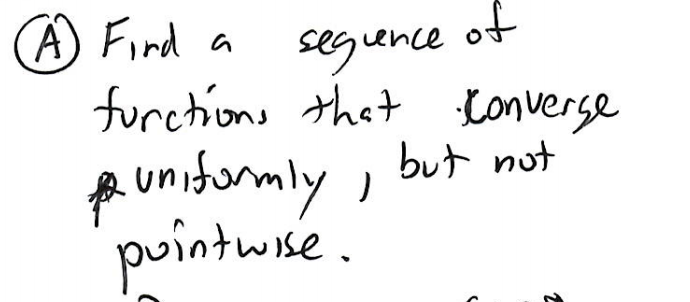 (A) Find a sequence of
functions that converge
uniformly, but not
pointwise.